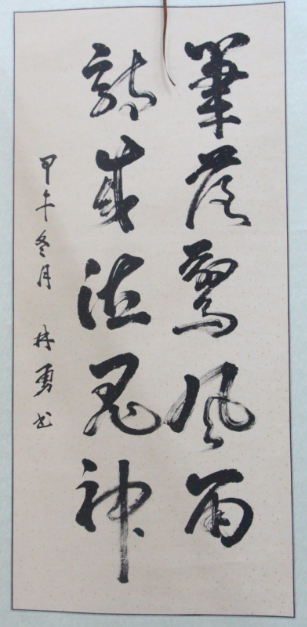 筆落驚風雨
詩成泣鬼神
甲午冬月 林勇书